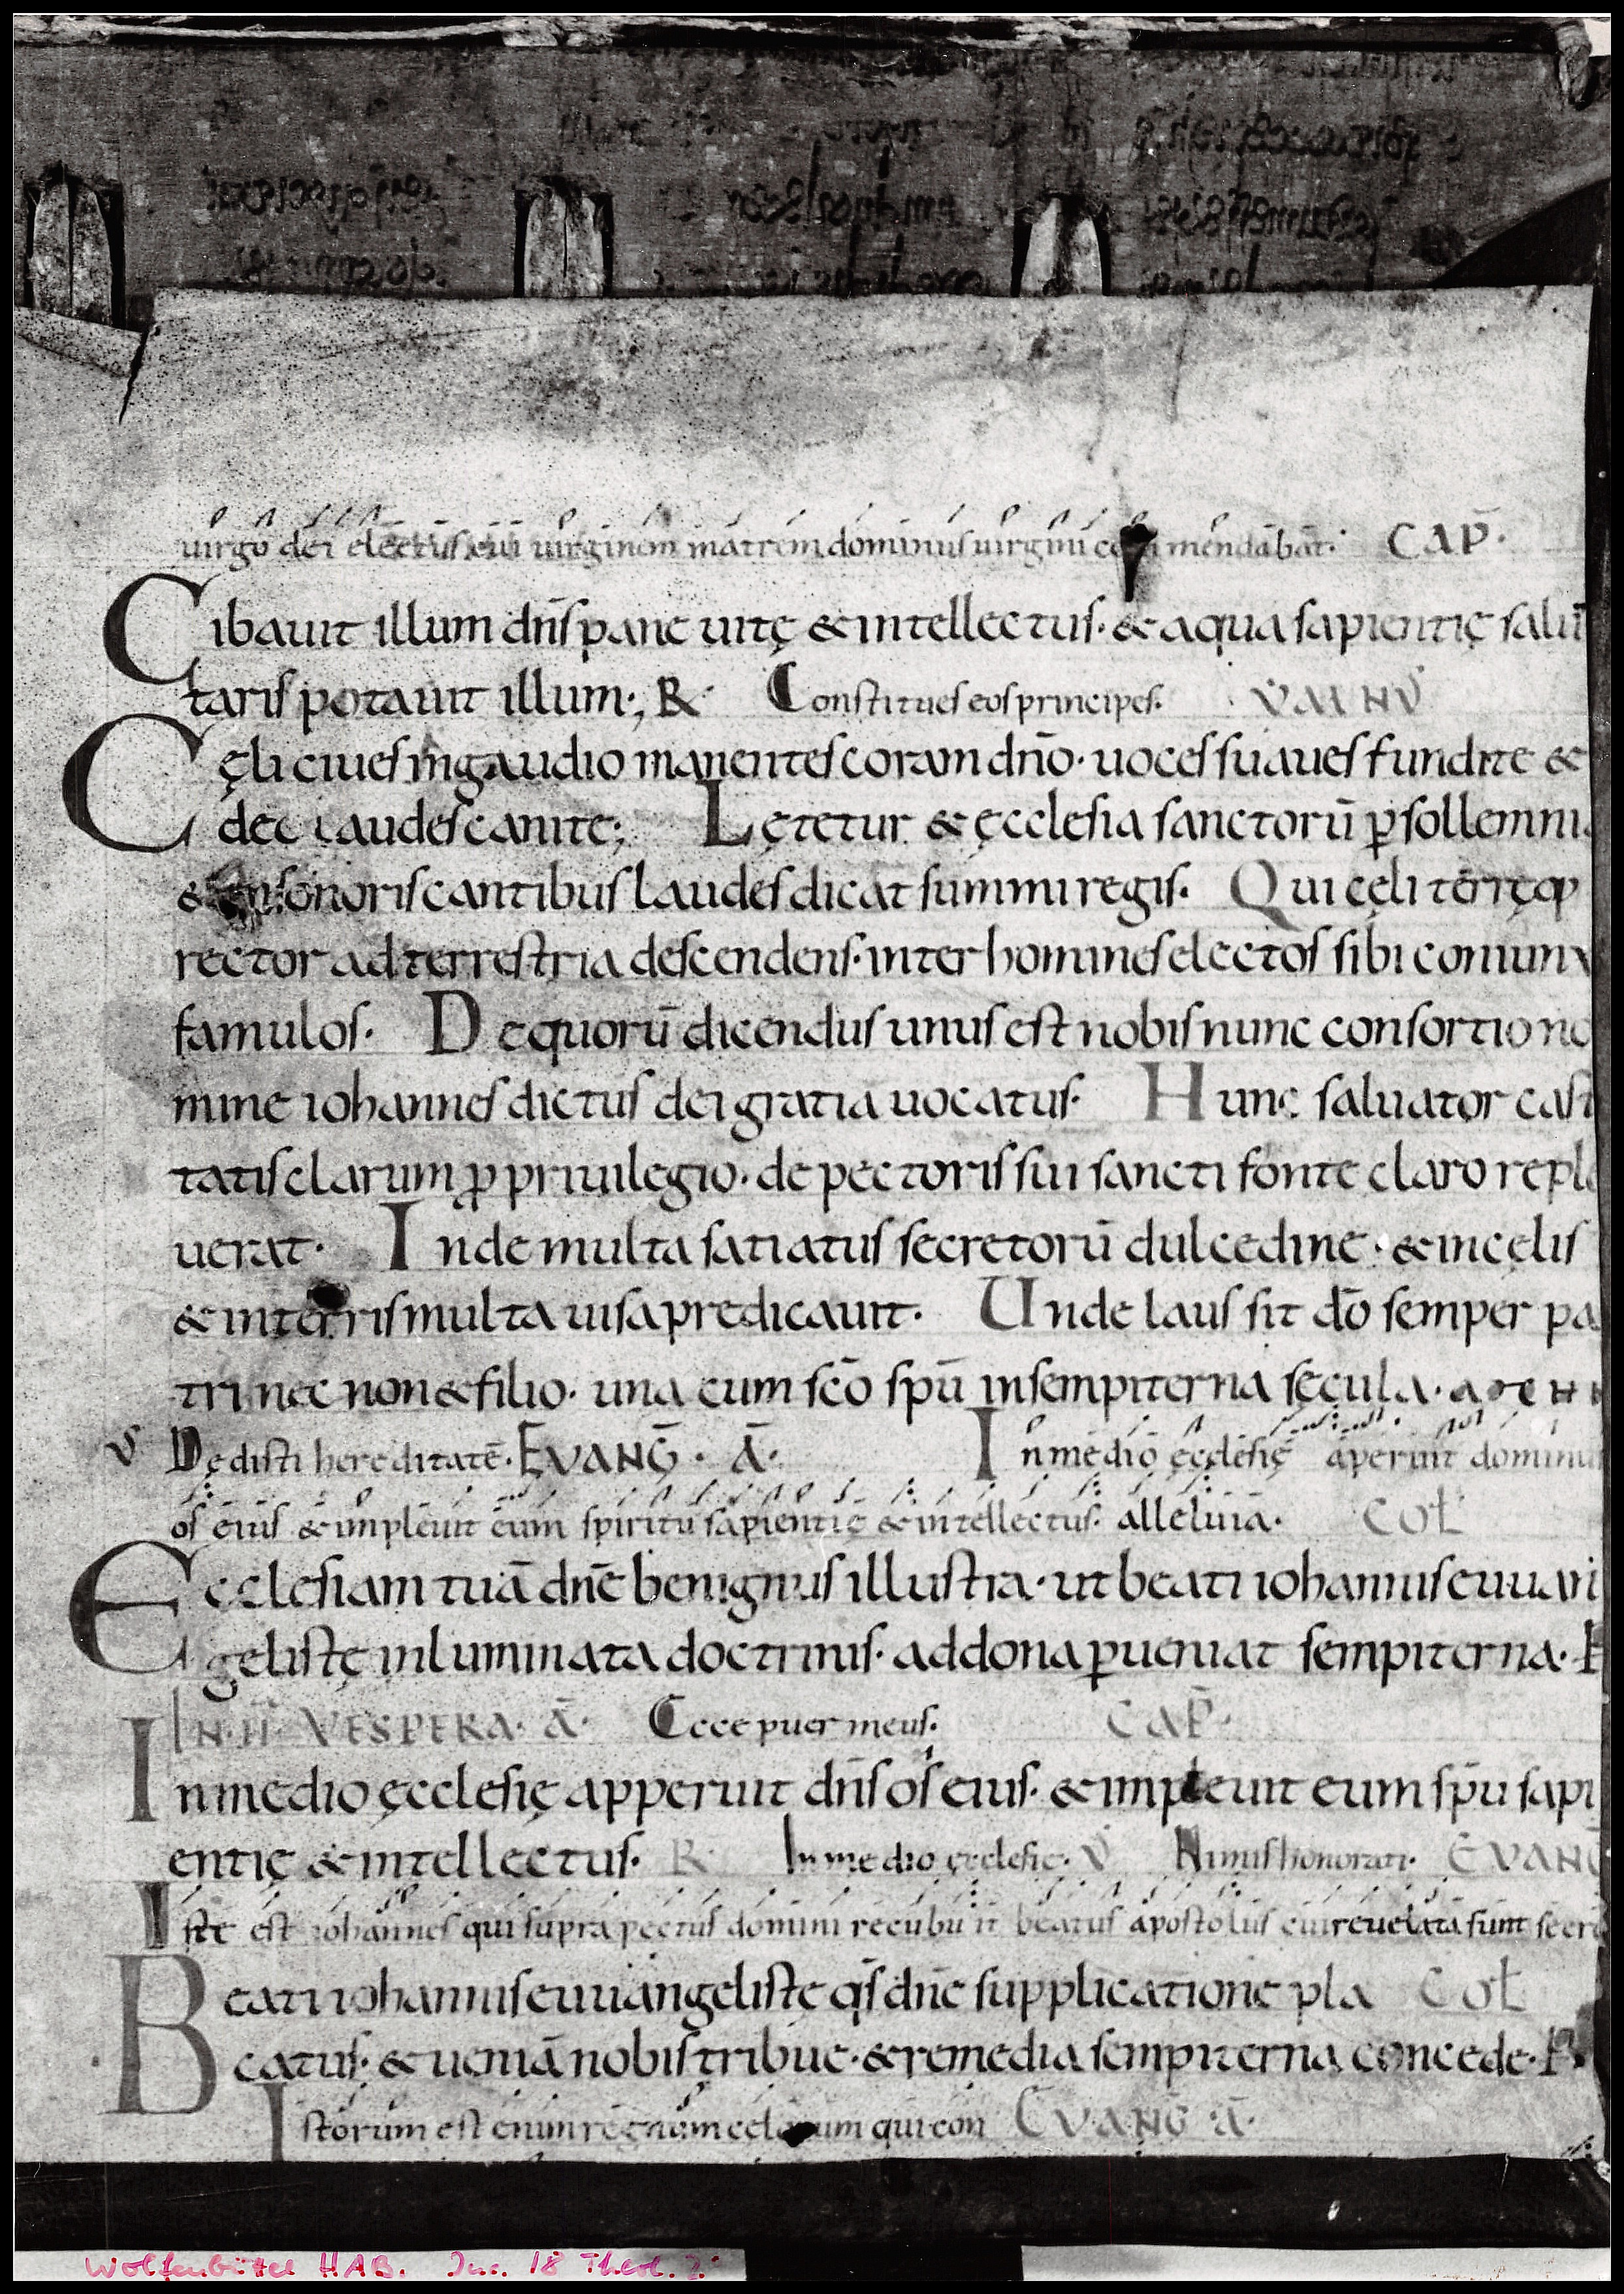 uirgo dei electus cui uirginem matrem dominus uirgini mendabat· CAP̄·
Cibauit illum dn̄s pane uitę & intellectus· & aqua sapientię salu
taris potauit illum·; R· Constitues eos principes· YMNUS
Cęli ciues in gaudio manentes coram dn̄o· uoces suaues fundite &
deo laudes canite; Lętetur & ęcclesia sanctorū ꝑ sollemnia
& sonoris cantibus laudes dicat summi regis· Qui cęli terręq
rector ad terrestria descendens· inter homines electos sibi coniunx
famulos· De quorū dicendus unus est nobis nunc consortio no
mine iohannes dictus dei gratia uocatus· Hunc saluator casti
tatis clarum ꝓ priuilegio· de pectoris sui sancti fonte claro reple
uerat· Inde multa satiatus secretorū dulcedine· & in cęlis
& in terris multa uisa predicauit· Unde laus sit dō semper pa
tri nec non & filio· una cum scō spū in sempiterna sęcula· amen
V Dedisti hereditatē· EVANḠ· Ā· In medio ęcclesię aperuit dominus
os eius & impleuit eum spiritu sapientię & intellectus· alleluia· COŁ
Ecclesiam tuā dn̄e benignus illustra· ut beati iohannis euuan
gelistę inluminata doctrinis· ad dona ꝑueniat sempiterna· P
IN·II· VESPERA· Ā· Ecce puer meus· CAP̄·
In medio ęcclesię apperuit dn̄s os eius· & impleuit eum spū sapi
entię & intellectus· R· In medio ęcclesie· V Nimis honorati· EVANG
Iste est iohannes qui supra pectus domini recubuit beatus apostolus cui reuelata sunt secre
Beati iohannis euuangeliste q̄s dn̄e supplicatione pla COŁ
catus· & ueniā nobis tribue· & remedia sempiterna concede· P
Istorum est enim regnum celorum qui con EVANG Ā·
Wolfenbüttel HAB. Inc. 18 Theol. 2°